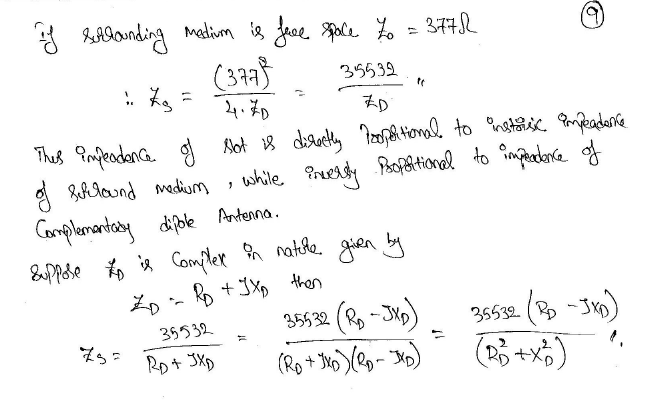 If surrounding medium is free space Z₀ = 377Ω
⑨
∴ Z_s = (377)² / 4·Z_D = 35532 / Z_D "
Thus impeadance of slot is directly Proportional to instrisic impeadance
of surround medium, while inversly Proportional to impeadance of
Complementary dipole Antenna.
Suppose Z_D is Complex in nature given by
Z_D = R_D + JX_D then
Z_s = 35532 / R_D + JX_D = 35532 (R_D - JX_D) / (R_D + JX_D)(R_D - JX_D) = 35532 (R_D - JX_D) / (R_D² + X_D²) ".